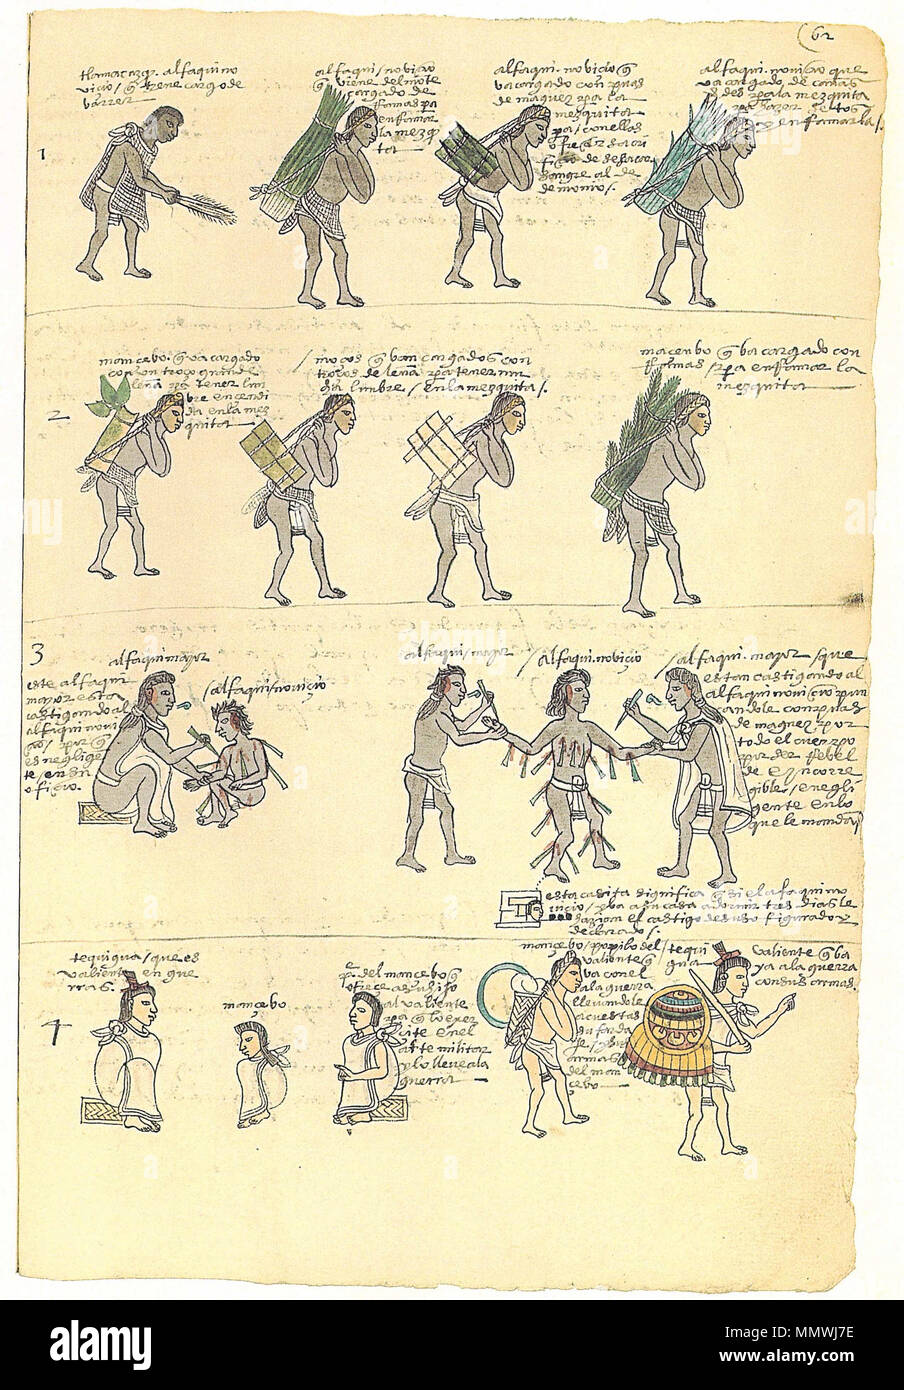 62
tlamacazqui. alfaqui no
vicio / q̃ tiene cargo de
barrer
alfaqui / novicio
q̃ viene del mote
cargado de
Ramas pa
enRamar
la mezqui
ta
alfaqui. novicio q̃
va cargado con puas
de maguey pa la
mezquita
pa / con ellas
ofrecer sacri
ficio de
sangre al de
demonio /.
alfaqui. novicio que
va cargado de cañas
des pa la mezquita
pa hazer
enRamarla /.
1
mancebo. q̃ va cargado
con un troço grande de
leña pa tener lum
bre encendi
da en la mez
quita
/ moços q̃ van cargados con
troços de leña pa tener
lumbre / en la mezquita /.
mancebo q̃ va cargado con
Ramas / pa enRamar la
mezquita
2
3
alfaqui mayor
este alfaqui
mayor esta
castigando al
alfaqui novi
cio / por q̃
es neglige
te / en su
oficio.
/ alfaqui / novicio
alfaqui / mayor
/ alfaqui. novicio
/ alfaqui. mayor / que
estan castigando al
alfaqui novicio / pun
çandole con puas
de maguey por
todo el cuerpo
por ser Rebel
de e yncorre
gible / e negli
gente en lo
que le mandan
esta casita significa q̃ si el alfaqui no
vicio / yva a su casa a dormir tres dias le
hazian el castigo de suso figurado y
declarado /.
4
tequigua / que es
valiente en gue
rras
mancebo
pe. del mancebo q̃
ofrece a su hijo
al valiente
pa q̃ lo exer
cite en el
arte militar
y lo lleve a la
guerra
mançebo / popilo del
valiente q̃
va con el
a la guerra
llevandole
a cuestas
su farda
je / y sus
armas
del man
cebo
/ tequi
gua
valiente q̃ va
ya a la guerra
con sus armas.
alamy
a
alamy
Image ID: MMWJ7E
www.alamy.com